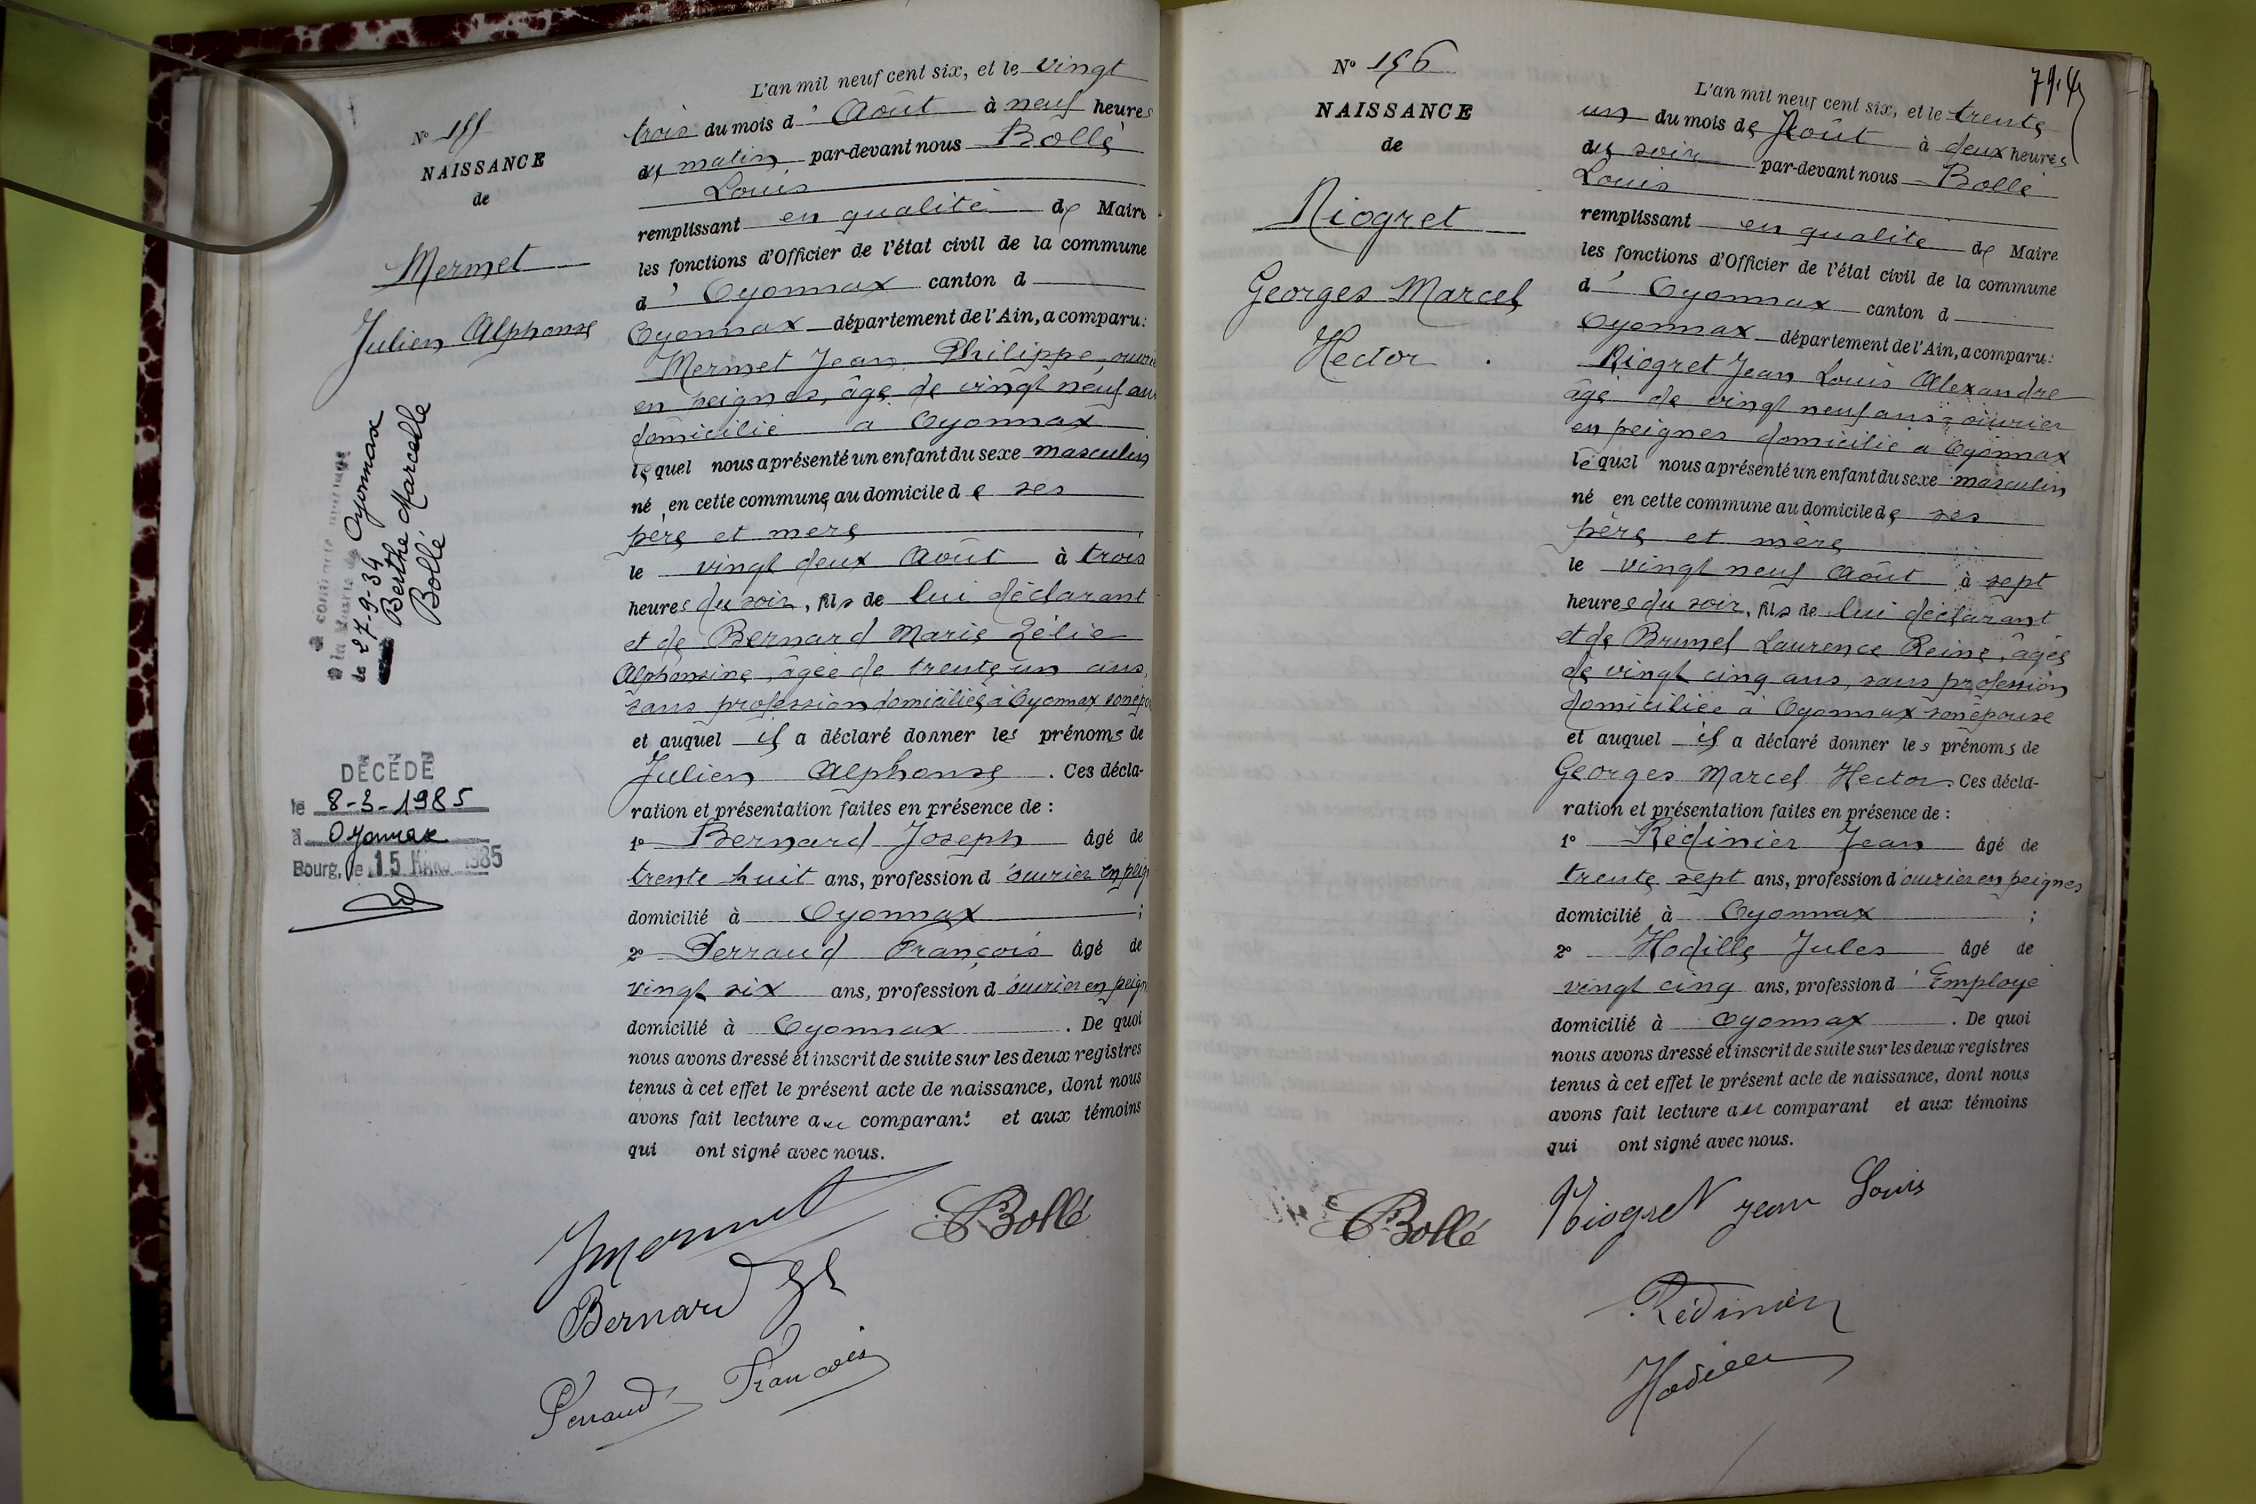 L'an mil neuf cent six, et le vingt
trois du mois d' Août à neuf heures
du matin par-devant nous Bollé
Louis
remplissant en qualité de Maire
les fonctions d'Officier de l'état civil de la commune
d' Oyonnax canton d
Oyonnax département de l'Ain, a comparu:
Mermet Jean Philippe ouvrier
en peignes, âgé de vingt neuf ans
domicilié à Oyonnax
lequel nous a présenté un enfant du sexe masculin
né en cette commune au domicile de ses
père et mère
le vingt deux Août à trois
heures du soir, fils de lui déclarant
et de Bernard Marie Zélie
Alphonsine, âgée de trente un ans,
sans profession domiciliée à Oyonnax son
et auquel il a déclaré donner les prénoms de
Julien Alphonse. Ces décla-
ration et présentation faites en présence de :
1° Bernard Joseph âgé de
trente huit ans, profession d'ouvrier en peign
domicilié à Oyonnax ;
2° Perraud François âgé de
vingt six ans, profession d'ouvrier en peign
domicilié à Oyonnax. De quoi
nous avons dressé et inscrit de suite sur les deux registres
tenus à cet effet le présent acte de naissance, dont nous
avons fait lecture au comparant et aux témoins
qui ont signé avec nous.
N° 155
NAISSANCE
de
Mermet
Julien Alphonse
A contracté mariage
à la Mairie de Oyonnax
le 27-9-34
Berthe Marcelle
Bollé
DÉCÉDÉ
le 8-3-1985
à Oyonnax
Bourg, le 15 MARS 1985
JMermet
Bollé
Bernard
Perraud François
N° 156
NAISSANCE
de
Niogret
Georges Marcel
Hector
L'an mil neuf cent six, et le trente
un du mois de Août à deux heures
du soir par-devant nous Bollé
Louis
remplissant en qualité de Maire
les fonctions d'Officier de l'état civil de la commune
d' Oyonnax canton d
Oyonnax département de l'Ain, a comparu:
Niogret Jean Louis Alexandre
âgé de vingt neuf ans, ouvrier
en peignes domicilié à Oyonnax
lequel nous a présenté un enfant du sexe masculin
né en cette commune au domicile de ses
père et mère
le vingt neuf Août à sept
heures du soir, fils de lui déclarant
et de Brunel Laurence Reine, âgée
de vingt cinq ans, sans profession
domiciliée à Oyonnax son épouse
et auquel il a déclaré donner les prénoms de
Georges Marcel Hector. Ces décla-
ration et présentation faites en présence de :
1° Rédinier Jean âgé de
trente sept ans, profession d'ouvrier en peignes
domicilié à Oyonnax ;
2° Hodille Jules âgé de
vingt cinq ans, profession d'Employé
domicilié à Oyonnax. De quoi
nous avons dressé et inscrit de suite sur les deux registres
tenus à cet effet le présent acte de naissance, dont nous
avons fait lecture au comparant et aux témoins
qui ont signé avec nous.
Bollé
Niogret jean Louis
Rédinier
Hodille